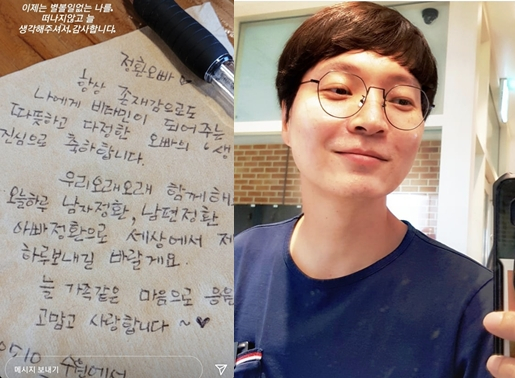 이제는 별볼일없는 나를.
떠나지않고 늘
생각해주셔서.감사합니다.
정환오빠
항상 존재감으로도
나에게 비타민이 되어주는
따뜻하고 다정한 오빠의 생
진심으로 축하합니다.
우리오래오래 함께해
오늘하루 남자정환, 남편정환
아빠정환으로 세상에서 제
하루보내길 바랄게요.
늘 가족같은 마음으로 응원
고맙고 사랑합니다 ~
메시지 보내기
수원에서